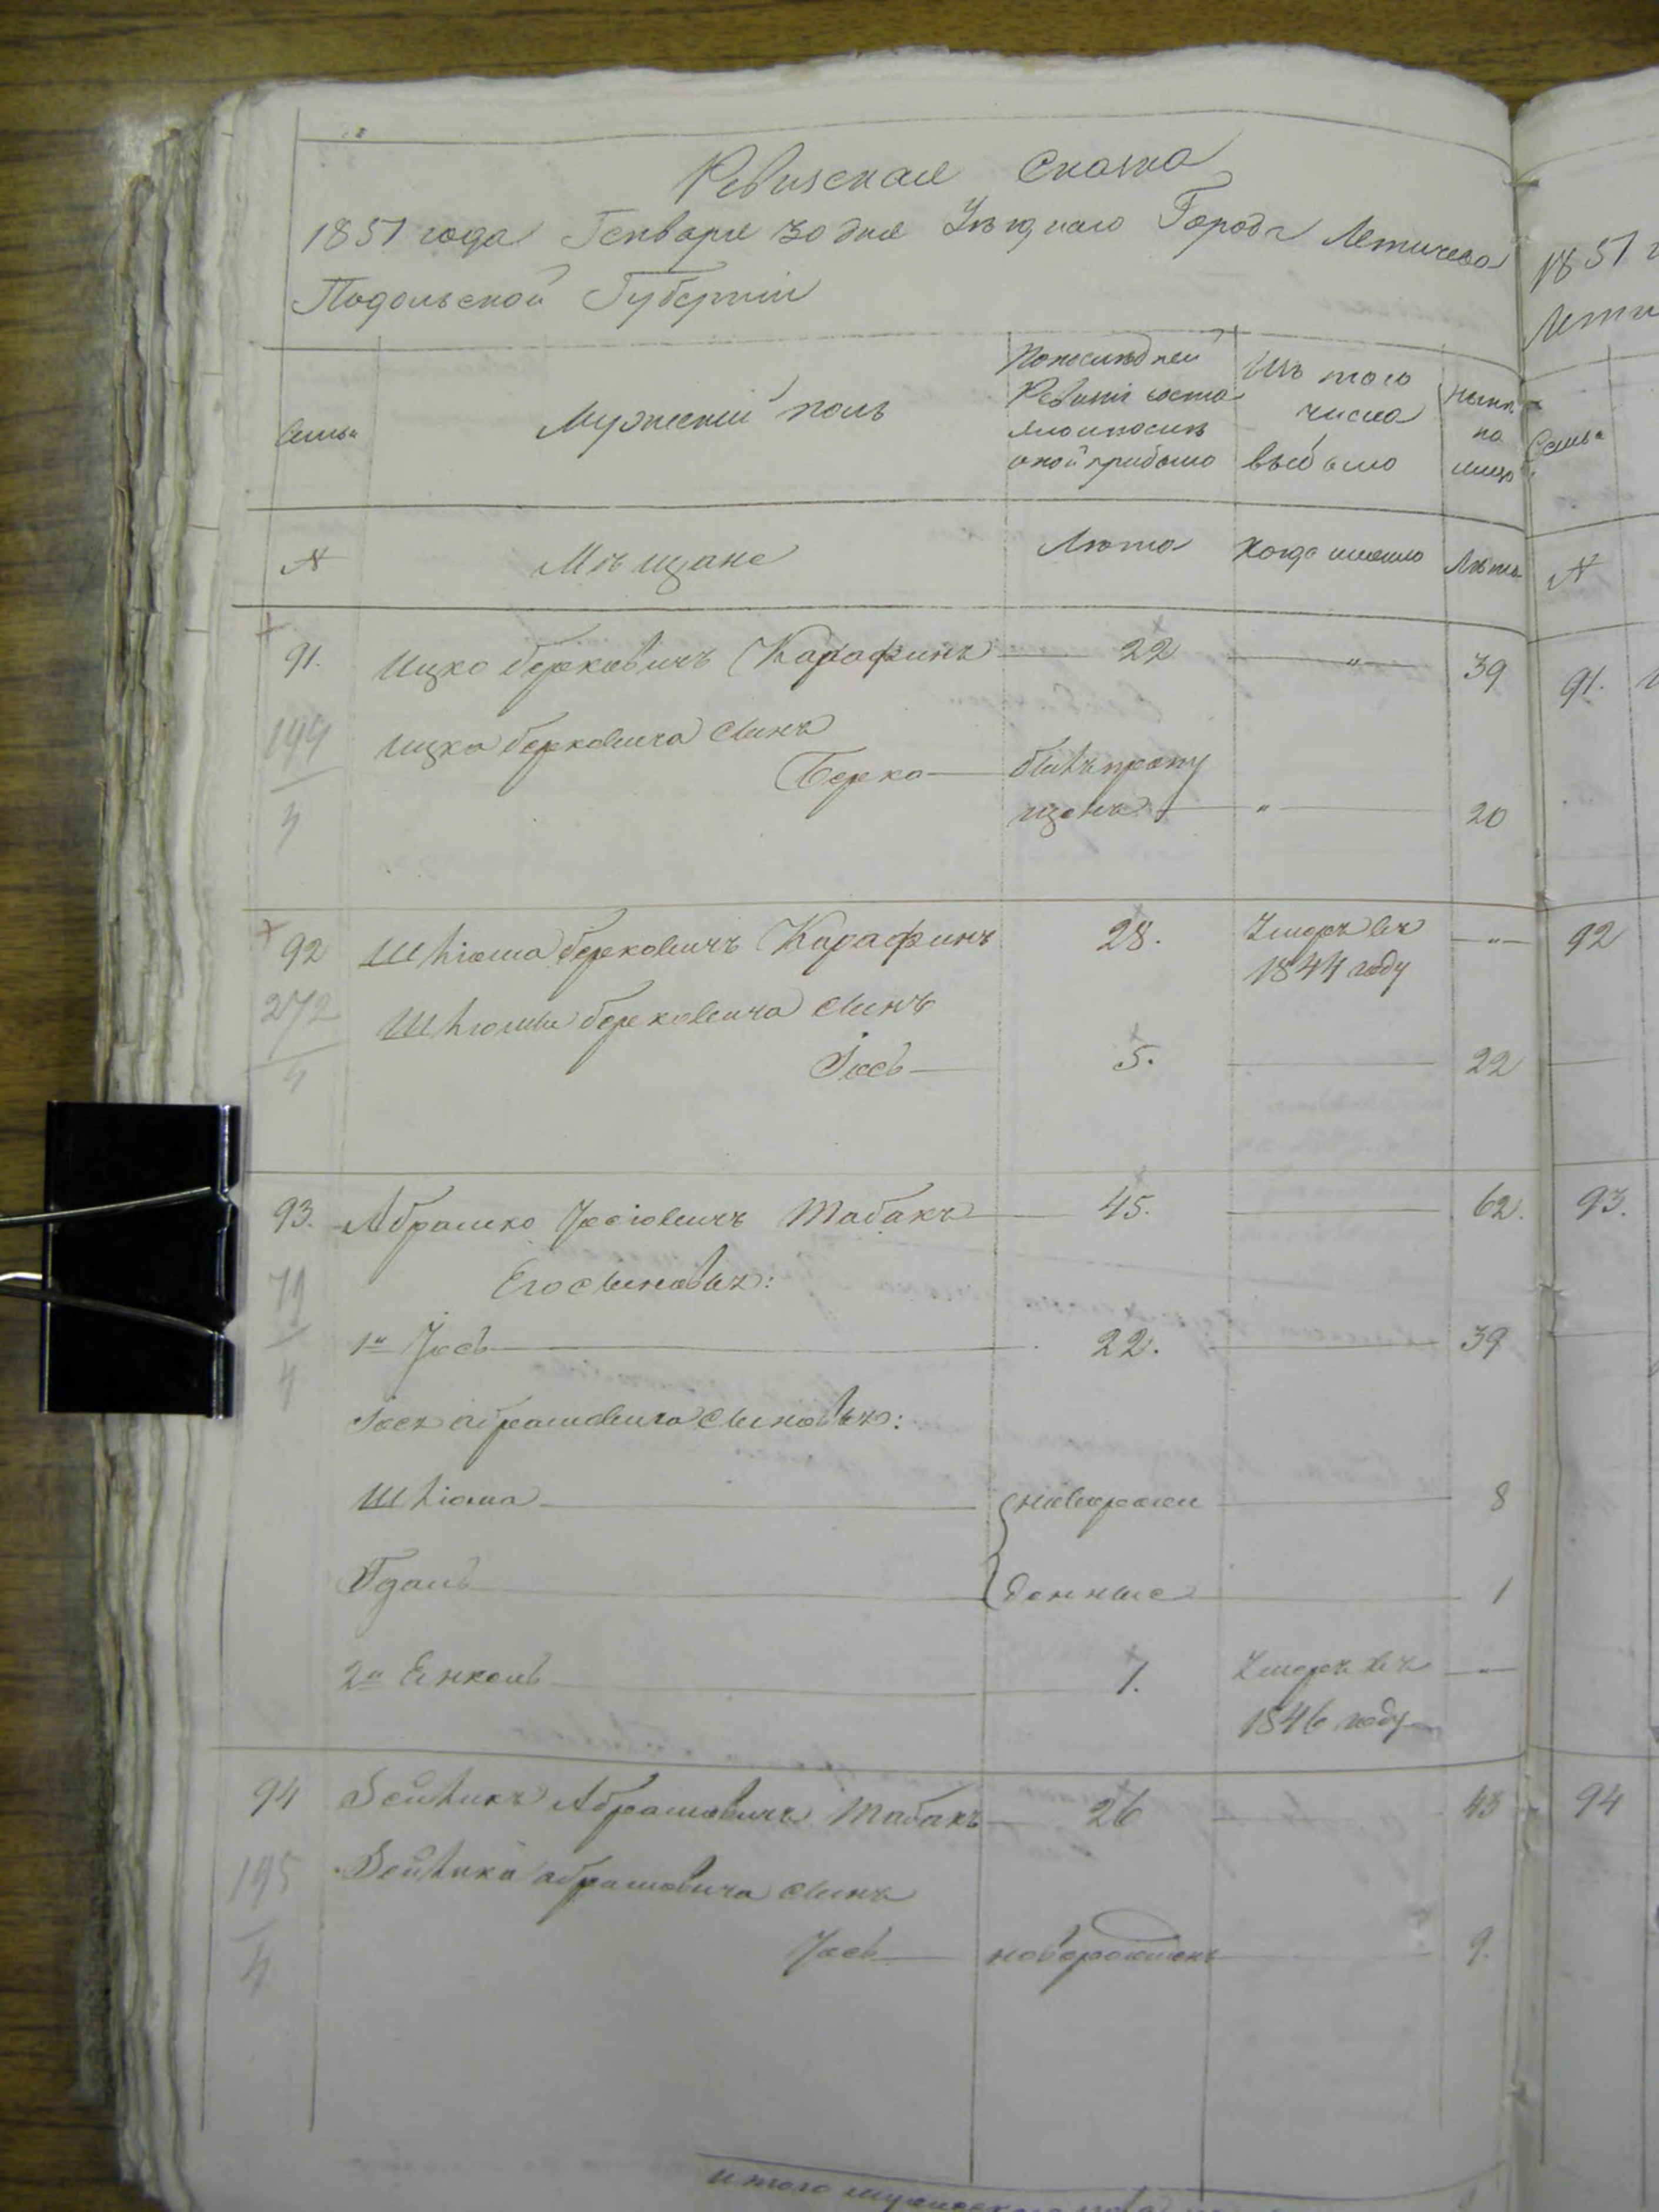 Ревизская Сказка
1851 года Генваря 30 дня Уѣзднаго Города Летичева
Подольской Губерніи
Семьи
Мужескій полъ
По последней Ревизіи состояло и после оной прибыло
Изъ того числа выбыло
Ныне на лицо
№
Мѣщане
Лѣта
Когда именно
Лѣта
91. Ицко Берковичъ Карафинъ 22 " 39
194
4
Ицка Берковича Сынъ
Берко былъ пропущенъ " 20
92 Шліома Берковичъ Карафинъ 28. Умеръ въ 1844 году "
272
4
Шліомы Берковича Сынъ
Іось 5. 22
93. Абрашко Іосіовичъ Табакъ 45. 62.
79
4
Его сыновья:
1й Іось 22. 39
Іося Абрашовича Сыновья:
Шліома новорожденные 8
1
2й Енкель 1. Умеръ въ 1846 году "
94 Зейликъ Абрашовичъ Табакъ 26 43
195
4
Зейлика Абрашовича Сынъ
Іось новорожденъ 9.
итого мужескаго пола
1851
Лети
Семьи
№
91.
92
93.
94